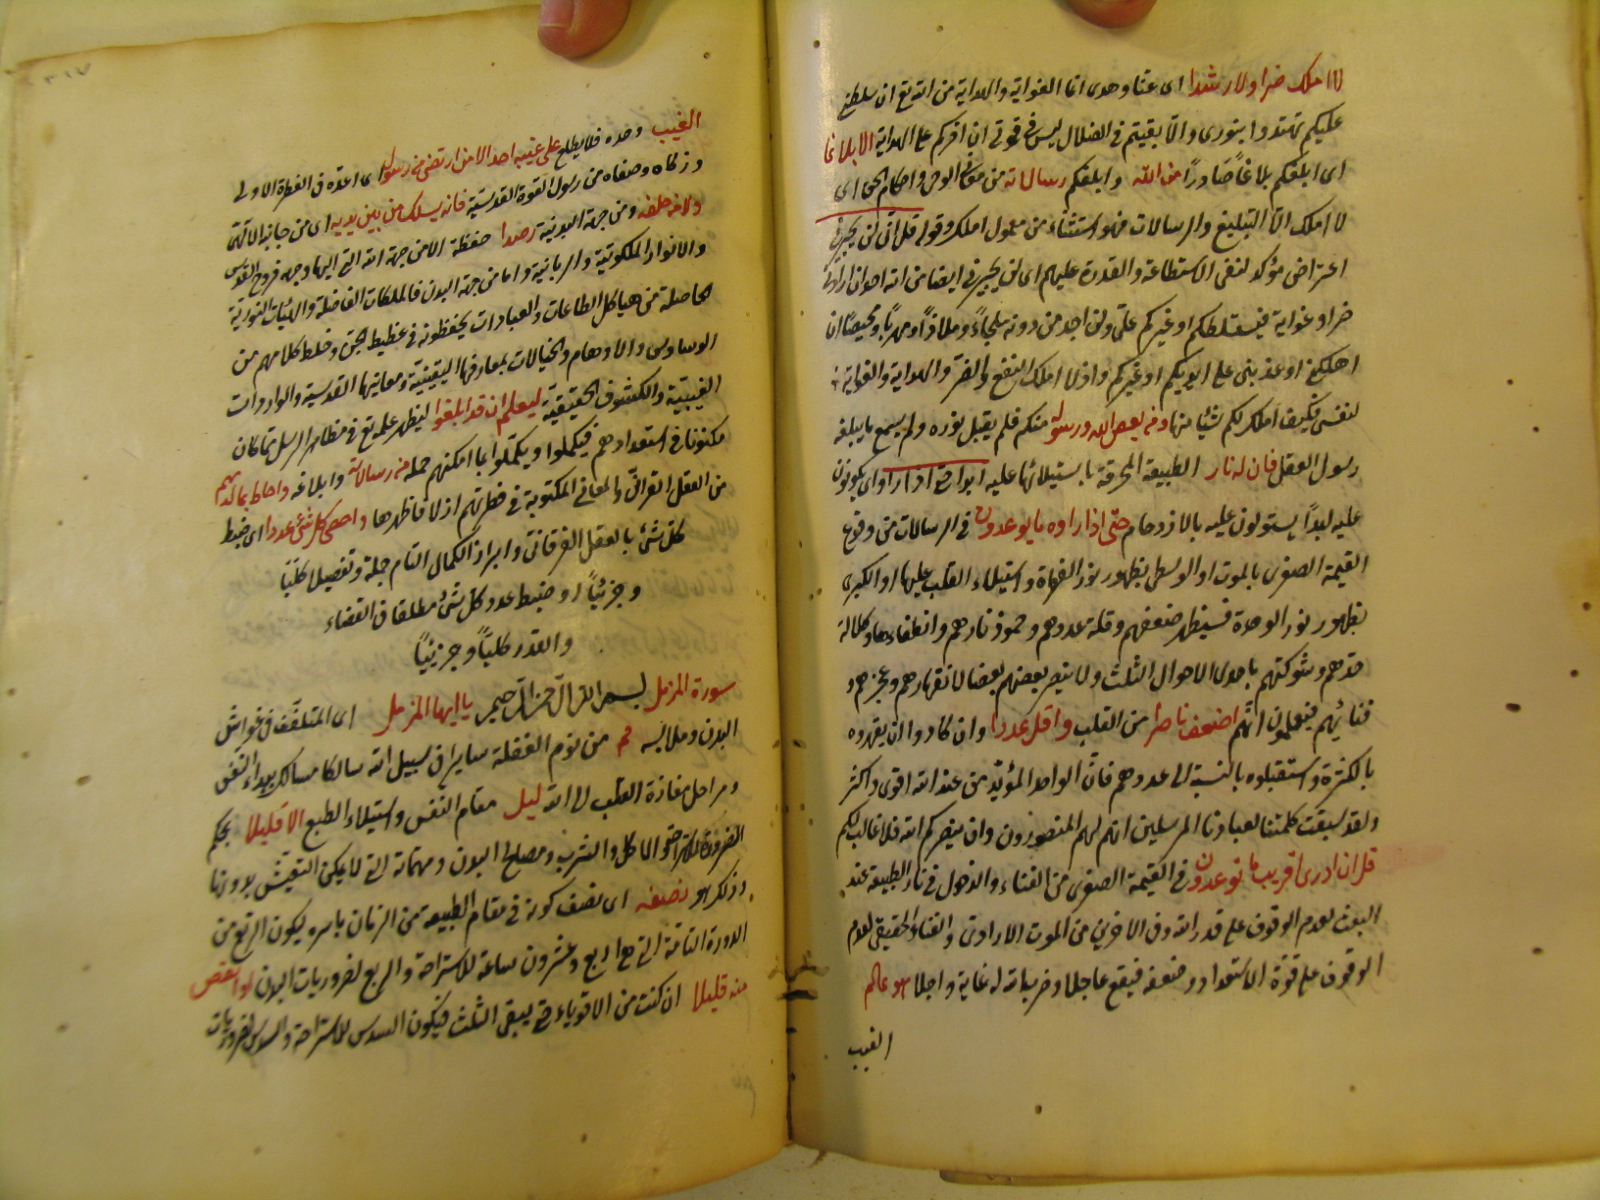 لا املك ضرا ولا رشدا اى غيا وهدى انما الغواية والهداية من الله تع ان سلطنى
عليكم تهتدوا بنورى والا بقيتم فى الضلال ليس فى قوتى ان اقركم على الهداية الا بلاغا
اى ابلغكم بلاغا صادرا من الله وابلغكم رسالاته من معانى الوحى واحكام الحق اى
لا املك الا التبليغ والرسالات فهو استثناء من معمول املك وقوله قل انى لن يجيرنى
اعتراض مؤكد لنفى الاستطاعة والقدرة عليهم اى لن يجيرنى ايضا من الله احد ان ارادنى
ضرا وغواية فيسلطكم او غيركم على ولن اجد من دونه ملجاء وملاذا ومهربا ومحيصا ان
اهلكنى او عذبنى على ايديكم او غيركم واذ لا املك النفع والضر والهداية والغواية
لنفسى فكيف املك لكم شيئا منها ومن يعص الله ورسوله منكم فلم يقبل نوره ولم يسمع ما يبلغه
رسول العقل فان له نار الطبيعة المحرقة باستيلائها عليه ابدا حتى اذا راوا اى يكونون
عليه لبدا يستولون عليه بالازدحام حتى اذا راوه ما يوعدون فى الرسالات من وقوع
القيمة الصغرى بالموت او الوسطى بظهور نور الفطرة واستيلاء القلب عليها او الكبرى
بظهور نور الوحدة فسيظهر ضعفهم وقلة عددهم وخمود نارهم وانطفاءها وكلالة
حدهم وشوكتهم باحدى الاحوال الثلث ولا ينصر بعضهم بعضا لانقهارهم وعجزهم و
فنائهم فيعلمون انهم اضعف ناصرا من القلب واقل عددا وان كادوا ان يقهروه
بالكثرة واستقبلوه بالنسبة الى عددهم فان الواحد المؤيد من عند الله اقوى واكثر
ولقد سبقت كلمتنا لعبادنا المرسلين انهم لهم المنصورون وان ينصركم الله فلا غالب لكم
قل ان ادرى اقريب ما توعدون فى القيمة الصغرى من الفناء والدخول فى نار الطبيعة عند
البعث لعدم الوقوف على قدر الله وفى الاخرين من الموت الارادى والفناء الحقيقى لعدم
الوقوف على قوة الاستعداد وضعفه فيقع عاجلا وضرب الله له غاية واجلا هو عالم
الغيب
الغيب وحده فلا يطلع على غيبه احد الا من ارتضى من رسول اى اعده فى الفطرة الاولى
وزكاه وصفاه من رسول القوة القدسية فانه يسلك من بين يديه اى من جانبه الالهى
ولا من خلفه ومن جهة البدنية رصدا حفظة اما من جهة الله التى اليها وجهه فروح القدس
والانوار الملكوتية والربانية واما من جهة البدن فالملكات الفاضلة والهيئات النورية
الحاصلة من هياكل الطاعات والعبادات يحفظونه من تخبيط الجن وخلط كلامهم من
الوساوس والاوهام والخيالات بمعارفها اليقينية ومعانيها القدسية والواردات
الغيبية والكشوف الحقيقية ليعلم ان قد ابلغوا ليظهر علمه تع فى مظاهر الرسل بما كان
مكنونا فى استعدادهم فيكملوا ويكملوا بما امكنهم حمله من رسالاته وابلاغه واحاط بما لديهم
من العقل القرآنى والمعانى المكتوبة فى فطرتهم ازلا فاظهرها واحصى كل شئ عددا اى ضبط
كل شئ بالعقل الفرقانى وابراز الكمال التام جملة وتفصيلا كليا
وجزئيا او ضبط عدد كل شئ مطلقا فى القضاء
والقدر كليا وجزئيا
سورة المزمل بسم الله الرحمن الرحيم يا ايها المزمل اى المتلفف فى غواشى
البدن وملابسه قم من نوم الغفلة سايرا فى سبيل الله سالكا مسالك بيداء النفس
ومراحل مفازة القلب الى الله ليل مقام النفس واستيلاء الطبع الا قليلا بحكم
الضرورة للاستراحة والاكل والشرب ومصلح البدن ومهماته التى لا يمكن التعيش بدونها
وذلك هو نصفه اى نصف كونه فى مقام الطبيعة من الزمان باسره ليكون الربع من
الدورة التامة التى هى اربع وعشرون ساعة للاستراحة والربع لضروريات البدن او انقص
منه قليلا ان كنت من الاقوياء حتى يبقى الثلث فيكون السدس للاستراحة والسدس لضروريات